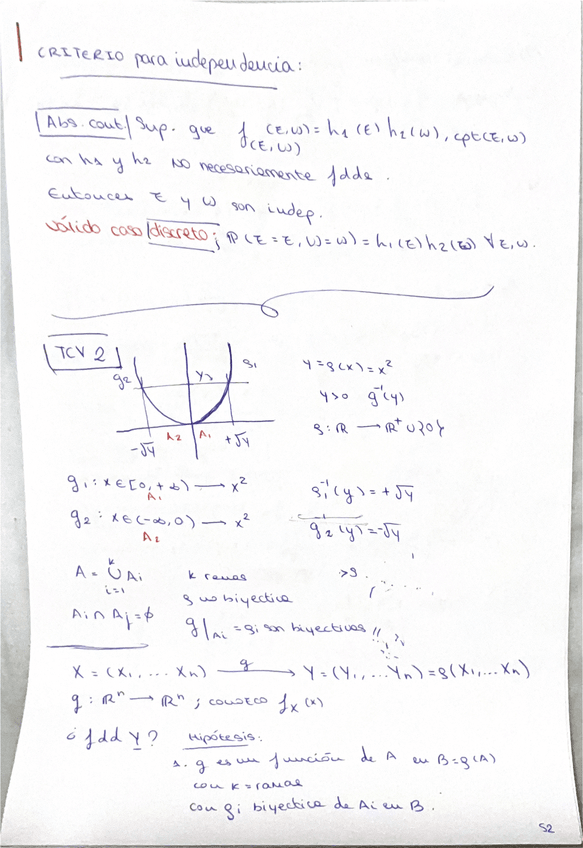 CRITERIO para independencia:
Abs. cont / Sup. que f(z,w) (z,w) = h1(z) h2(w), cpt(z,w)
con h1 y h2 NO necesariamente fdds.
Entonces z y w son indep.
válido caso discreto; P(z=z, W=w) = h1(z) h2(w) ∀z,w.
TCV 2
g2 y> g1
-√y A2 A1 +√y
y = g(x) = x²
y>0 g⁻¹(y)
g: R → R⁺∪{0}
g1: x∈[0,+∞) → x²
A1
g2: x∈(-∞,0) → x²
A2
g1⁻¹(y) = +√y
g2⁻¹(y) = -√y
A = ∪ Ai k ramas
k
i=1
g no biyectiva
Ai ∩ Aj = ϕ g|Ai = gi son biyectivas
X = (X1, ... Xn) g → Y = (Y1, ... Yn) = g(X1, ... Xn)
g: Rⁿ → Rⁿ; conozco fX(x)
¿fdd Y? Hipótesis:
1. g es un función de A en B=g(A)
con k = ramas
con gi biyectiva de Ai en B.
52